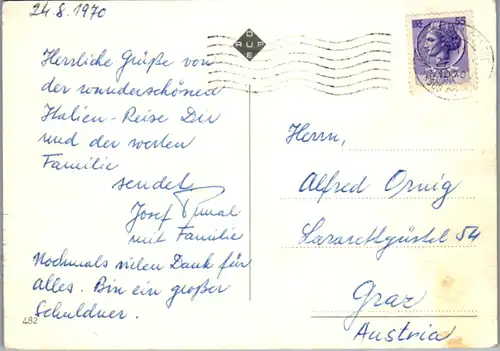 24.8.1970
Herrliche Grüße von
der wunderschönen
Italien-Reise Dir
und der werten
Familie
sendet
Josef
mit Familie
Nochmals vielen Dank für
alles. Bin ein großer
Schuldner.
482
LIRE 55
Herrn,
Alfred Ornig
Lazarettgürtel 54
Graz
Austria